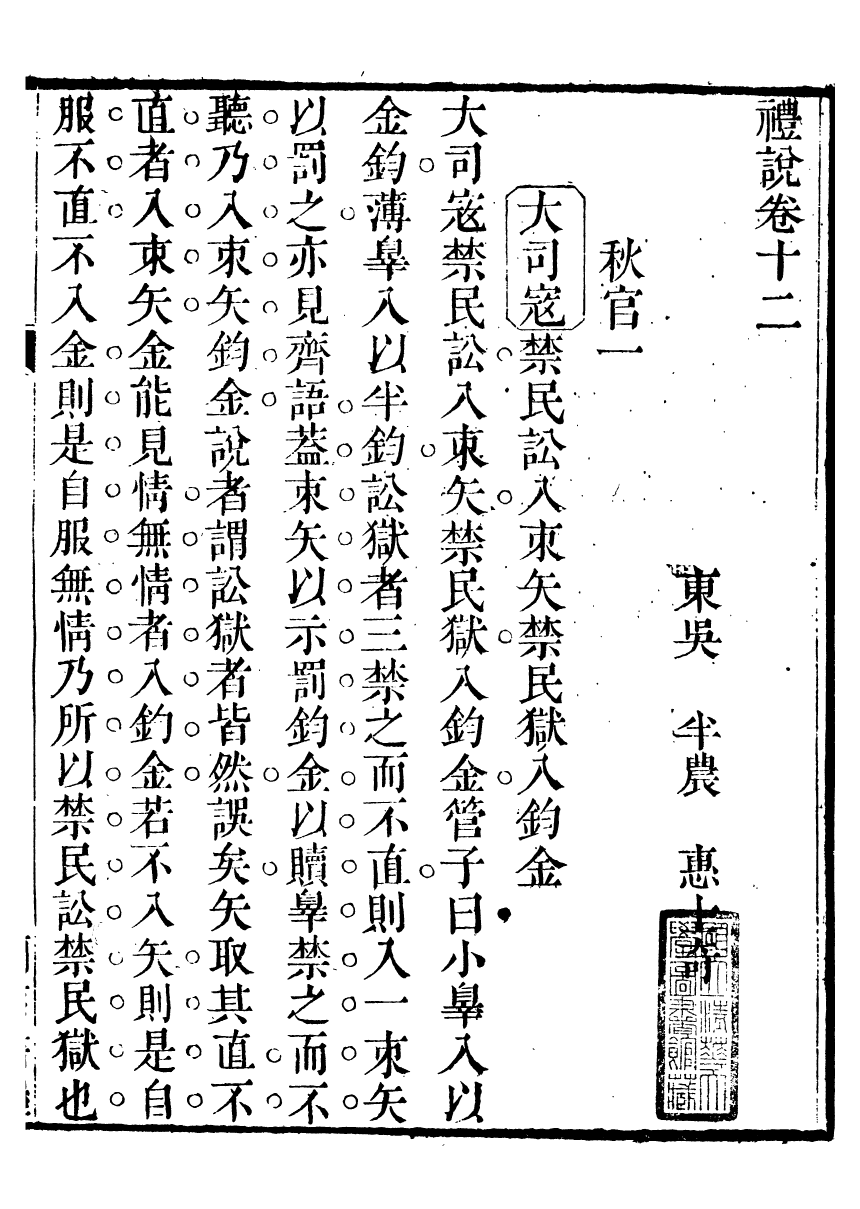 禮說卷十二
東吳 半農 惠士奇
秋官一
大司寇禁民訟入束矢禁民獄入鈞金
大司寇禁民訟入束矢禁民獄入鈞金管子曰小辠入以
金鈞薄辠入以半鈞訟獄者三禁之而不直則入一束矢
以罰之亦見齊語蓋束矢以示罰鈞金以贖辠禁之而不
聽乃入束矢鈞金說者謂訟獄者皆然誤矣矢取其直不
直者入束矢金能見情無情者入鈞金若不入矢則是自
服不直不入金則是自服無情乃所以禁民訟禁民獄也